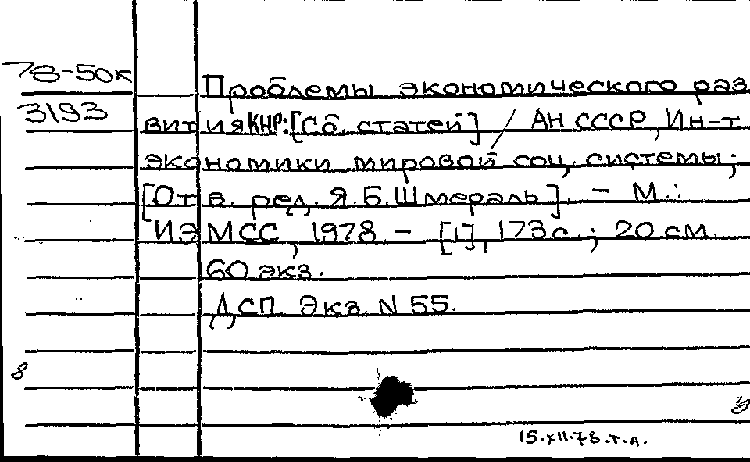 78-50к
3193
Проблемы экономического раз
вития КНР: [Сб. статей] / АН СССР, Ин-т
экономики мировой соц. системы;
[Отв. ред. Я.Б. Шмераль]. – М.:
ИЭМСС, 1978. – [1], 173 с.; 20 см.
60 экз.
ДСП. Экз. N 55.
15.XII.78.т.д.